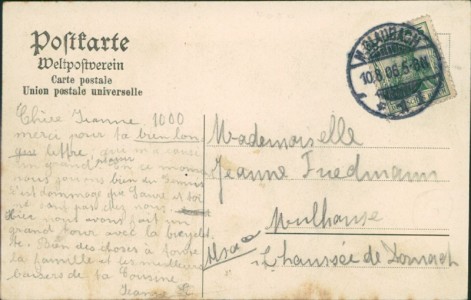 Postkarte
Weltpostverein
Carte postale
Union postale universelle
M.GLADBACH
10.8.06.5-6N.
Chère Jeanne 1000
merci pour ta bien lon
gue lettre, qui m'a causé
un grand plaisir en ce moment
nous jouons bien du
C'est dommage que Laure et toi
ne sont pas chez nous.
Hier nous avons fait un
grand tour avec la bicyclet
te. Bien des choses à toute
la famille et les meilleurs
baisers de ta Cousine
Jeanne
Mademoiselle
Jeanne Friedmann
Mulhouse
Alsace
Chaussée de Dornach